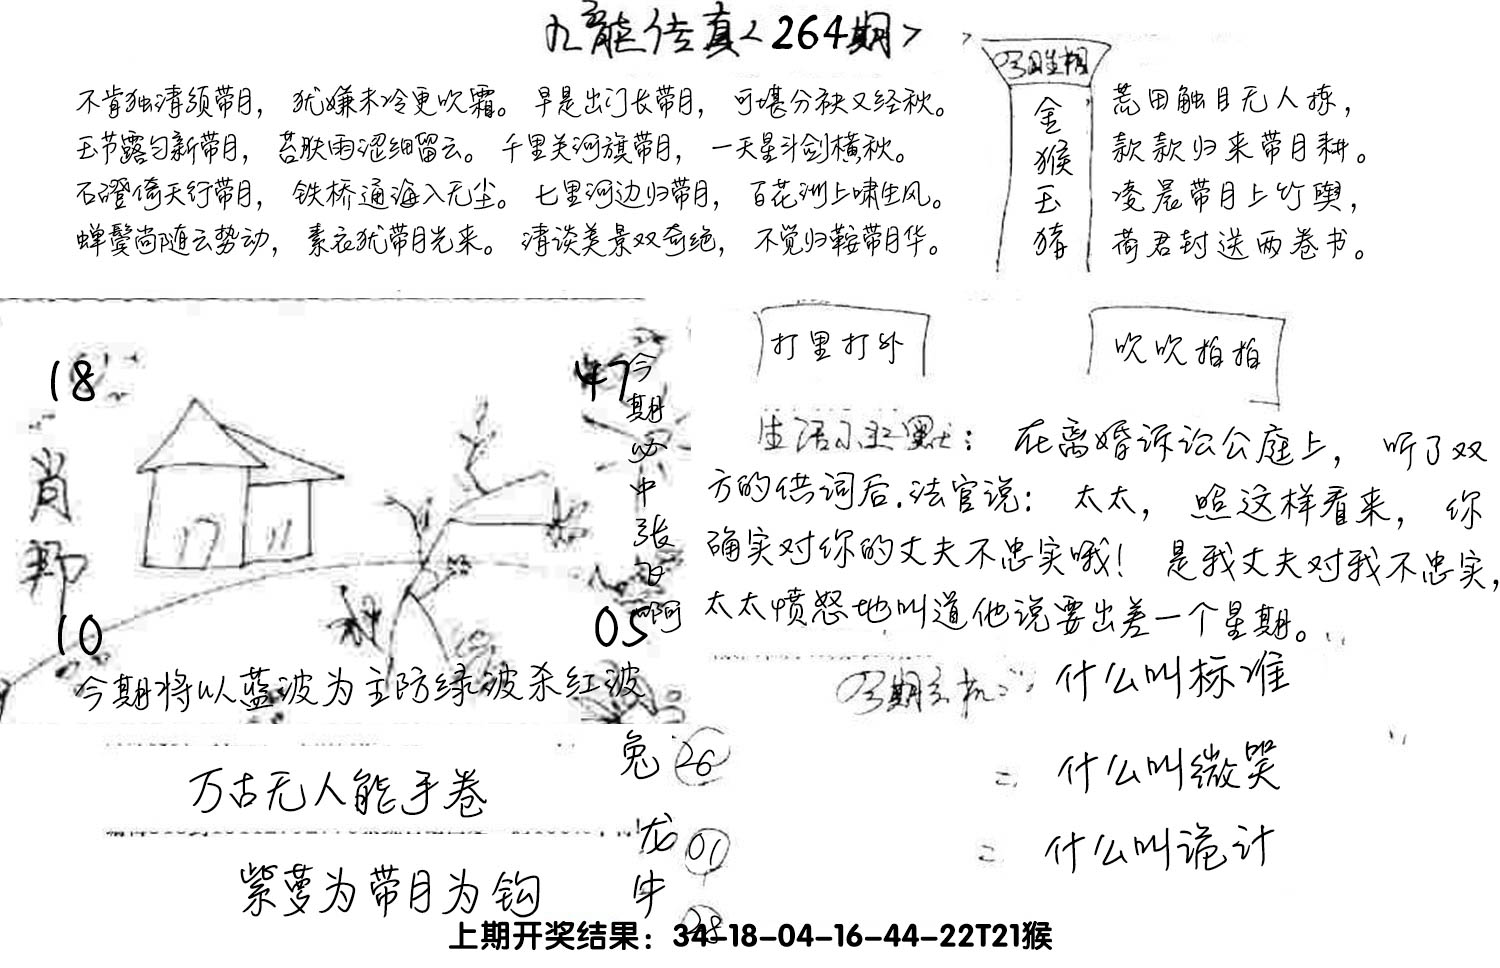 九龙传真<264期>
不肯独清须带月，犹嫌未冷更吹霜。早是出门长带月，可堪分袂又经秋。
玉节露匀新带月，苔肤雨涩细留云。千里关河旗带月，一天星斗剑横秋。
石磴倚天行带月，铁桥通海入无尘。七里河边归带月，百花洲上啸生风。
蝉鬓尚随云势动，素衣犹带月光来。清谈美景双奇绝，不觉归鞍带月华。
金猴玉猪
荒田触目无人拣，
款款归来带月耕。
凌晨带月上竹舆，
荷君封送两卷书。
18
47
肖
10
05
今期必中张飞啊
今期将以蓝波为主防绿波杀红波
打里打外
吹吹拍拍
生活小幽默：在离婚诉讼公庭上，听了双
方的供词后.法官说：太太，照这样看来，你
确实对你的丈夫不忠实哦！是我丈夫对我不忠实，
太太愤怒地叫道他说要出差一个星期。
今期玄机
什么叫标准
二 什么叫微笑
二 什么叫诡计
万古无人能手卷
紫萝为带月为钩
兔 26
龙 01
牛 28
上期开奖结果：34-18-04-16-44-22T21猴